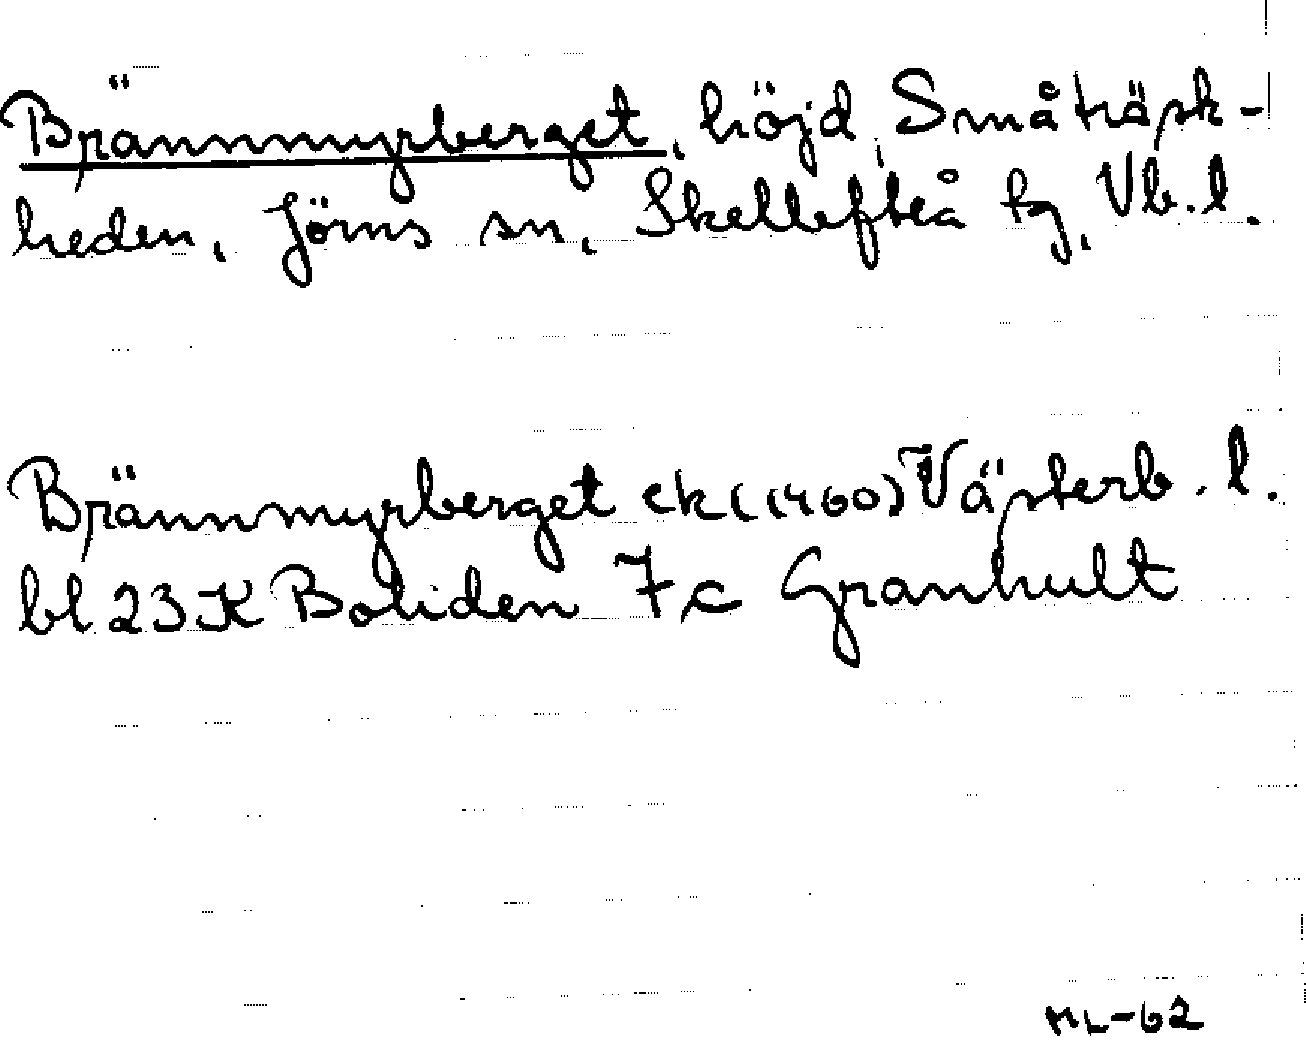 Brännmyrberget, höjd, Småträsk-
heden, Jörns sn, Skellefteå tg, Vb.l.
Brännmyrberget ek (1960) Västerb. l.
bl 23 K Boliden 7 c Granhult
ML-62